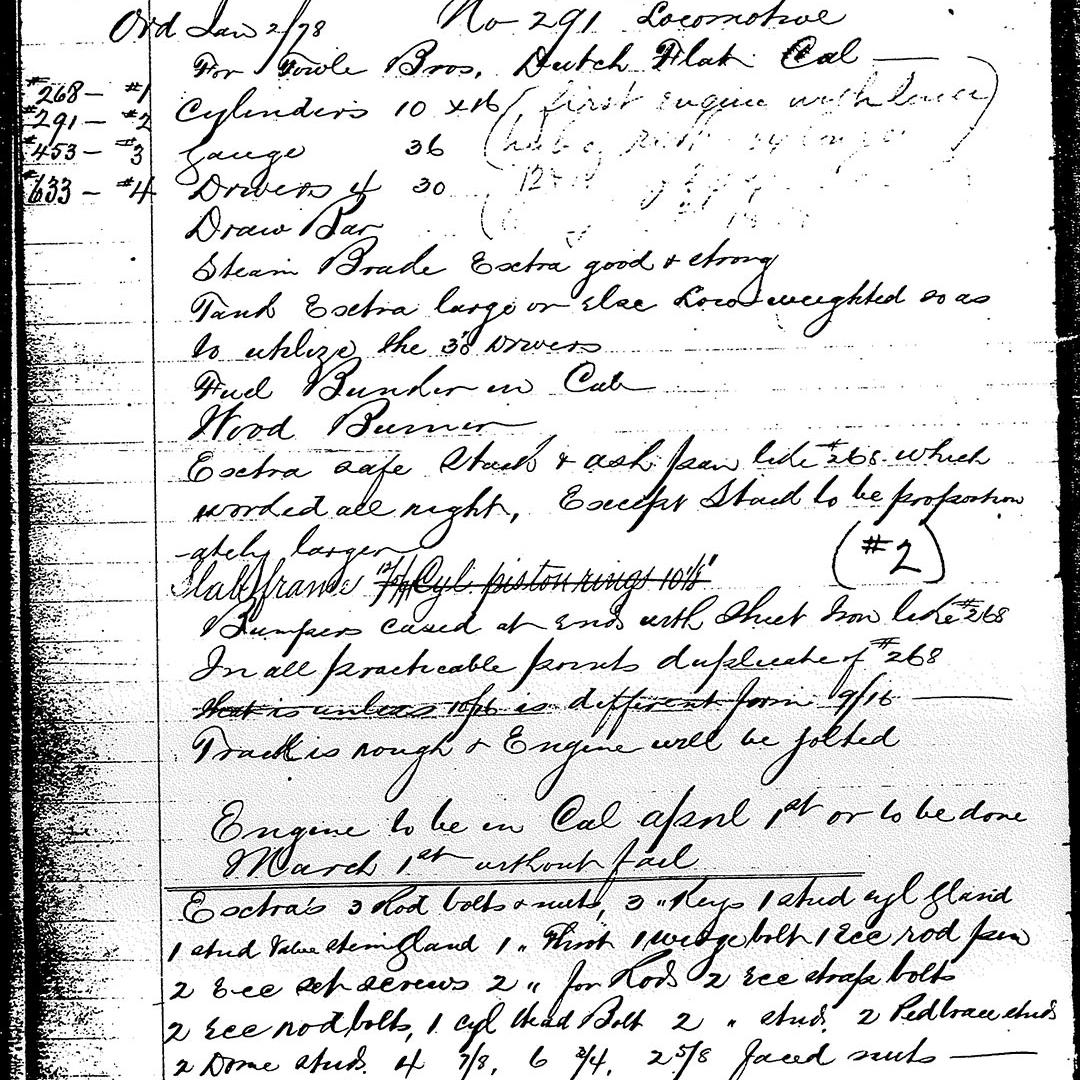 Ord Jan 2/78 No 291 Locomotive
For Towle Bros. Dutch Flat Cal —
#268 – #1
#291 – #2
#453 – #3
#633 – #4
Cylinders 10 x 16 (first engine with
Gauge 36
Drivers 4 30
Draw Bar
Steam Brake Extra good & strong
Tank Extra large or Else Low weighted so as
to utilize the 30 Drivers
Fuel Bunker in Cab
Wood Burner
Extra safe Stack & ash pan like #268 which
worked all right, Except Stack to be proportion
-ately larger
(#2)
Slab frame Cyl piston rings 10 1/8"
Bumpers cased at Ends with Sheet Iron like #268
In all practicable points duplicate of #268
that is unless 10/16 is different from 9/16 —
Track is rough & Engine will be jolted
Engine to be in Cal April 1st or to be done
March 1st without fail
Extra's 3 Rod bolts & nuts, 3 " Keys 1 stud cyl gland
1 stud Valve stem gland 1 " 1 wedge bolt 1 Ecc rod pin
2 Ecc set screws 2 " for Rods 2 Ecc strap bolts
2 Ecc rod bolts, 1 Cyl Head Bolt 2 " stud. 2 Ped brace studs
2 Dome studs. 4 7/8, 6 3/4, 2 5/8 faced nuts —